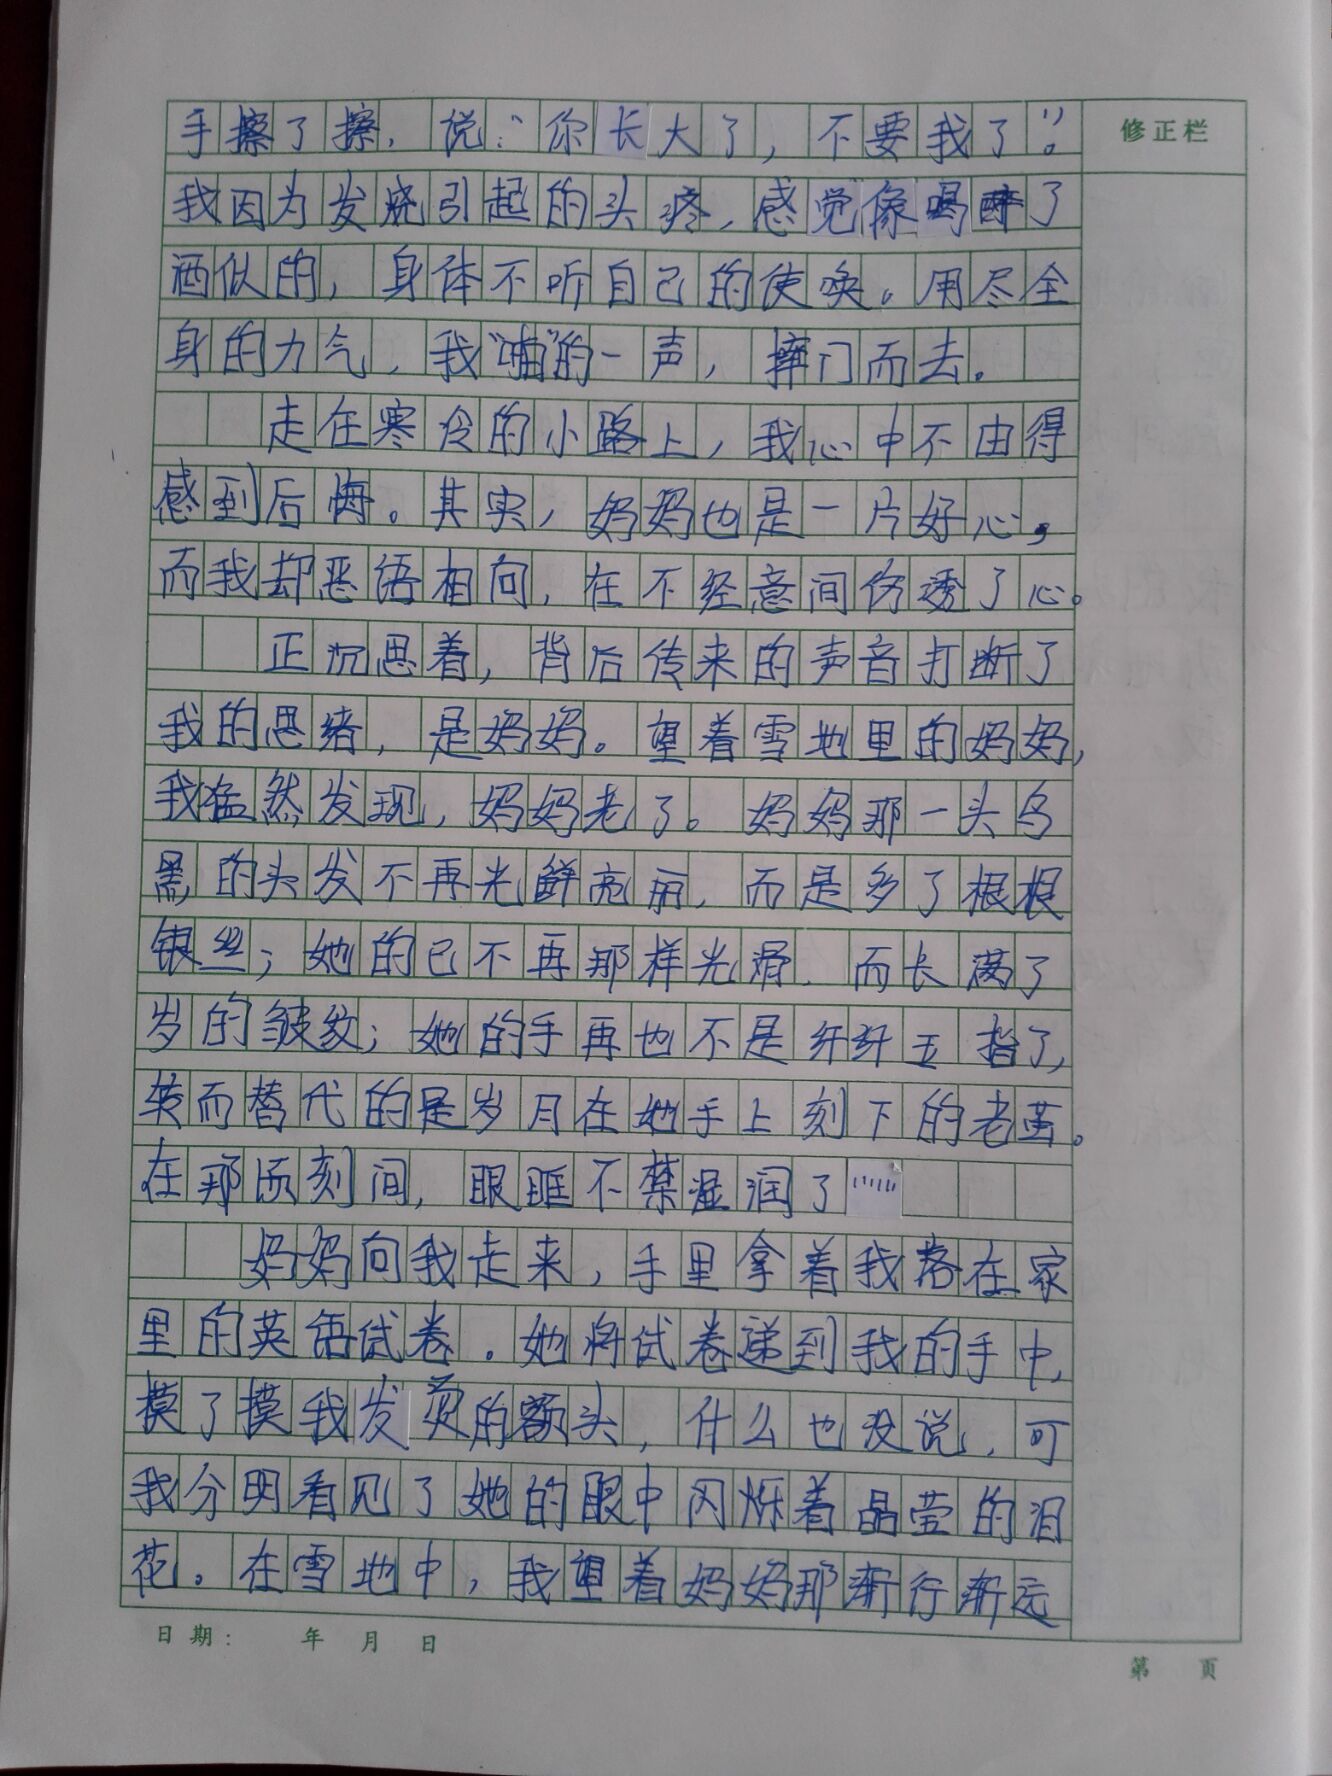 手擦了擦,说:“你长大了,不要我了。”
修正栏
我因为发烧引起的头疼,感觉像喝醉了
酒似的,身体不听自己的使唤。用尽全
身的力气,我“啪”的一声,摔门而去。
走在寒冷的小路上,我心中不由得
感到后悔。其实,妈妈也是一片好心,
而我却恶语相向,在不经意间伤透了心。
正沉思着,背后传来的声音打断了
我的思绪,是妈妈。望着雪地里的妈妈,
我猛然发现,妈妈老了。妈妈那一头乌
黑的头发不再光鲜亮丽,而是多了根根
银丝;她的已不再那样光滑,而长满了
岁的皱纹;她的手再也不是纤纤玉指了,
转而替代的是岁月在她手上刻下的老茧。
在那顷刻间,眼眶不禁湿润了……
妈妈向我走来,手里拿着我落在家
里的英语试卷。她将试卷递到我的手中,
摸了摸我发烫的额头,什么也没说,可
我分明看见了她的眼中闪烁着晶莹的泪
花。在雪地中,我望着妈妈那渐行渐远
日期: 年 月 日
第 页